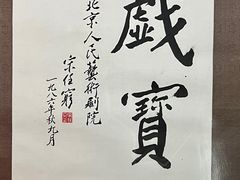 戲寶
北京人民藝術劇院
宗任窮
一九八六年秋九月